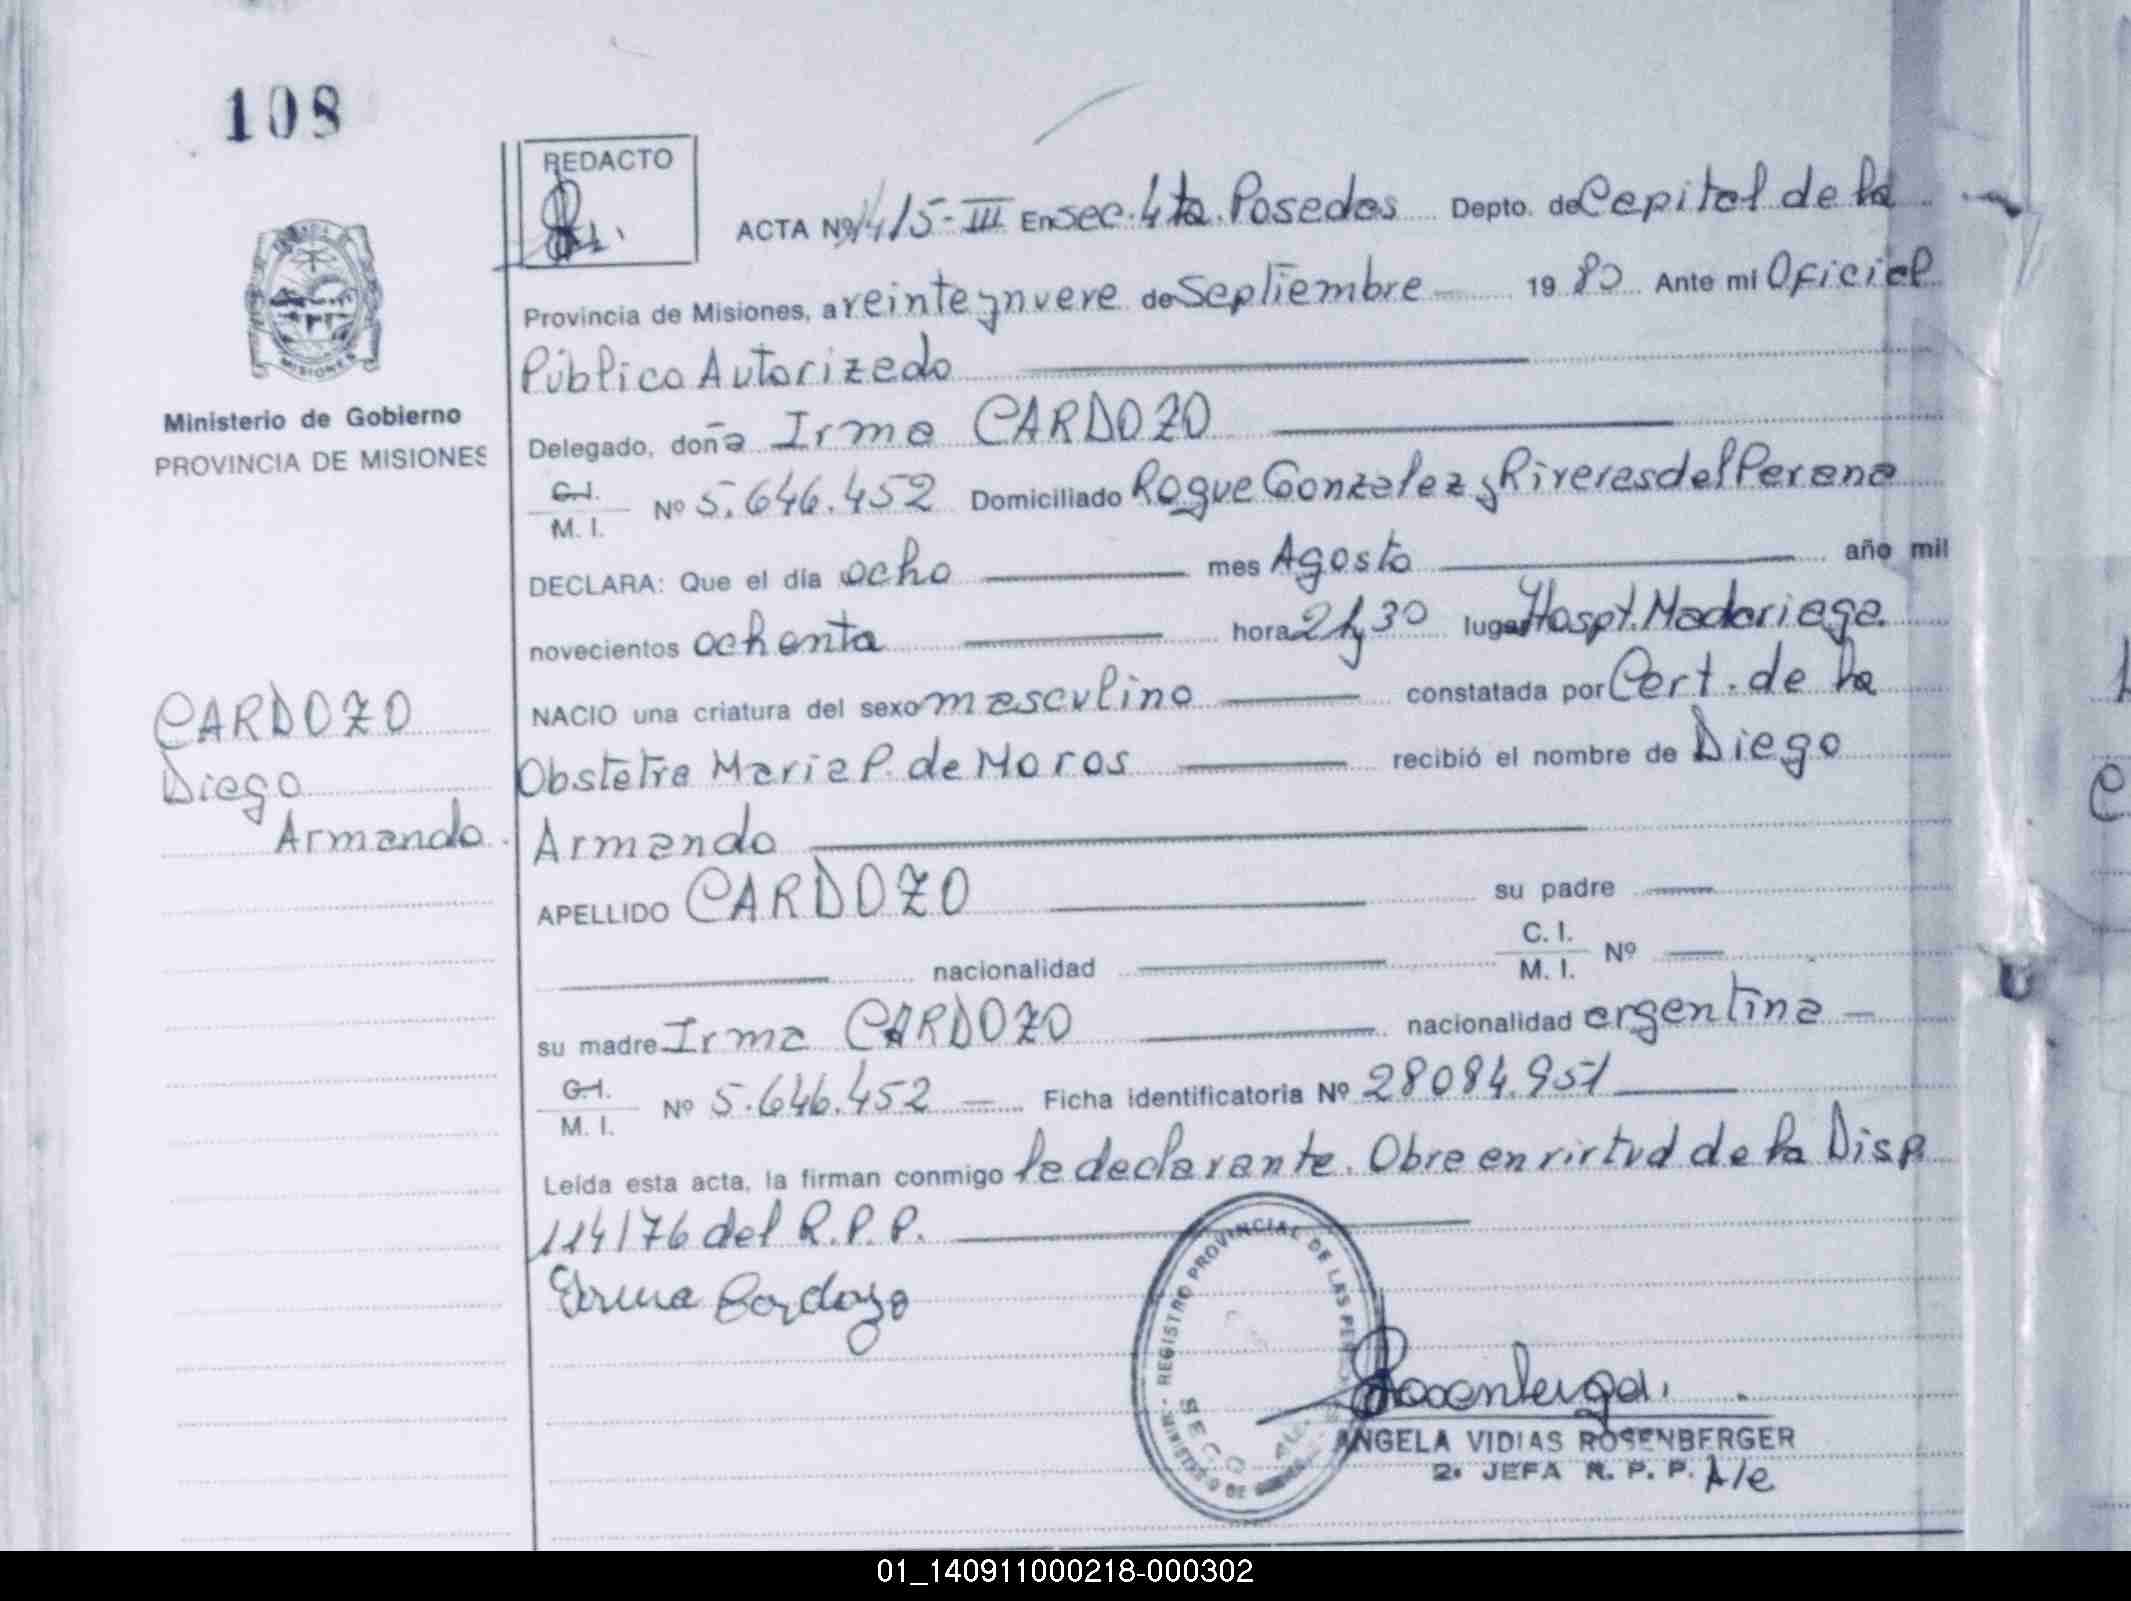 108
REDACTO
ACTA Nº 1415-III En Sec. 4ta. Posadas Depto. de Capital de la
Provincia de Misiones, a veintey nueve de Septiembre 1980 Ante mi Oficial
Público Autorizado
Delegado, doña Irma CARDOZO
C.I.
M. I. Nº 5.646.452 Domiciliado Roque Gonzalez y Riveras del Parana
DECLARA: Que el día ocho mes Agosto año mil
novecientos ochenta hora 21,30 lugar Hospt. Madariaga.
NACIO una criatura del sexo masculino constatada por Cert. de la
Obstetra Maria P. de Moros recibió el nombre de Diego
Armando
APELLIDO CARDOZO su padre
nacionalidad C. I.
M. I. Nº
su madre Irma CARDOZO nacionalidad argentina
C.I.
M. I. Nº 5.646.452 Ficha identificatoria Nº 28084.951
Leída esta acta, la firman conmigo la declarante. Obre en virtud de la Disp.
114/76 del R.P.P.
Irma Cardozo
MISIONES
Ministerio de Gobierno
PROVINCIA DE MISIONES
CARDOZO
Diego
Armando.
REGISTRO PROVINCIAL DE LAS PER
MINISTERIO DE
SECC
Rosenberger
ANGELA VIDIAS ROSENBERGER
2ª JEFA R. P. P. A/c
01_140911000218-000302